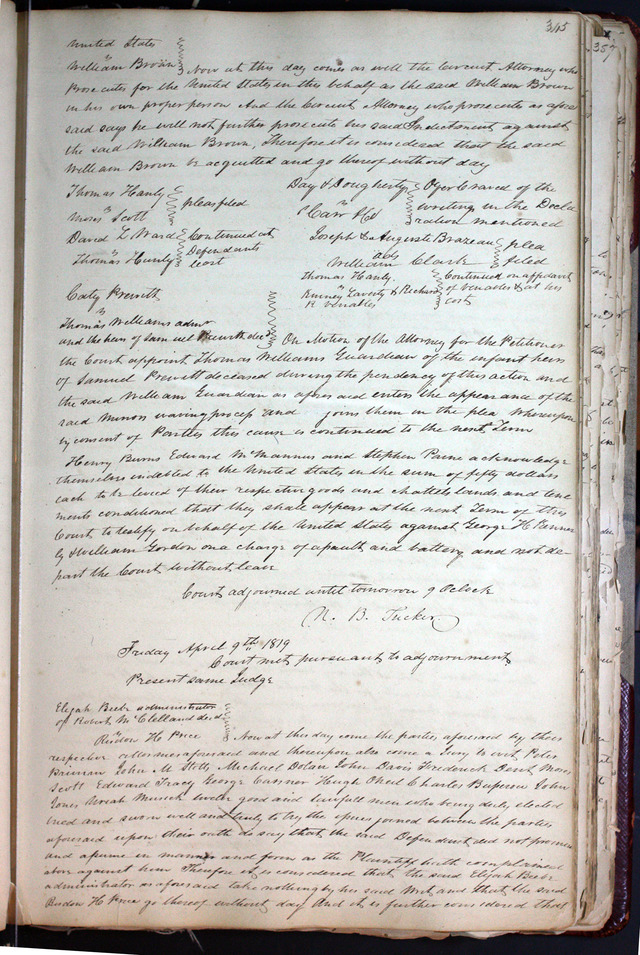 345
357
United States
vs
William Brown Now at this day comes as well the Circuit Attorney who
Prosecutes for the United States in this behalf as the said William Brown
in his own proper person And the Circuit Attorney who prosecutes as afore
said says he will not further prosecute his said Indictment against
the said William Brown, Therefore it is considered that the said
William Brown be acquitted and go thereof without day
Thomas Hanly
vs pleas filed
Moses Scott
David L Ward Continued at
vs Defendants
Thomas Hanly cost
Day & Dougherty Oyer Craved of the
vs writing in the Decla
Carr ration mentioned
Joseph & Auguste Brazeau plea
ads filed
William Clark
Thomas Hanly Continued on affidavit
vs of Venables & at his
Kinney Laverty & Richard cost
R Venables
Caty Prewitt
vs
Thomas Williams admr
and the heirs of Samuel Prewitt decd On Motion of the Attorney for the Petitioner
the Court appoint Thomas Williams Guardian of the infant heirs
of Samuel Prewitt deceased during the pendency of this action and
the said William Guardian as aforesaid enters the appearance of the
said Minors waving process and joins them in the plea whereupon
by consent of Parties this cause is continued to the next Term
Henry Burns Edward McMannus and Stephen Paine acknowledge
themselves indebted to the United States in the sum of fifty dollars
each to be levied of their respective goods and chattels lands and tene
ments conditioned that they shall appear at the next Term of this
Court to testify on behalf of the United States against George H
by & William Gordon on a charge of assault and battery and not de
part the Court without leave
Court adjourned until tomorrow 9 Oclock
N. B. Tucker
Friday April 9th 1819
Court met pursuant to adjournment
Present same Judge
Elijah Beebe administrator
of Robert McClelland decd
vs
Risdon H Price Now at this day come the parties aforesaid by their
respective attornies aforesaid and thereupon also come a Jury to wit Peter
John M Stotts Michael Dolan John Davis Frederick Dent Moses
Scott Edward Tracy George Casner Hugh Oneil Charles John
Jones Uriah Musick twelve good and lawfull men who being duly elected
tried and sworn well and truly to try the issues joined between the parties
aforesaid upon their oath do say that the said Defendant did not promise
and assume in manner and form as the Plaintiff hath complained
above against him Therefore it is considered that the said Elijah Beebe
administrator as aforesaid take nothing by his said Writ and that the said
Risdon H Price go thereof without day And it is further considered that